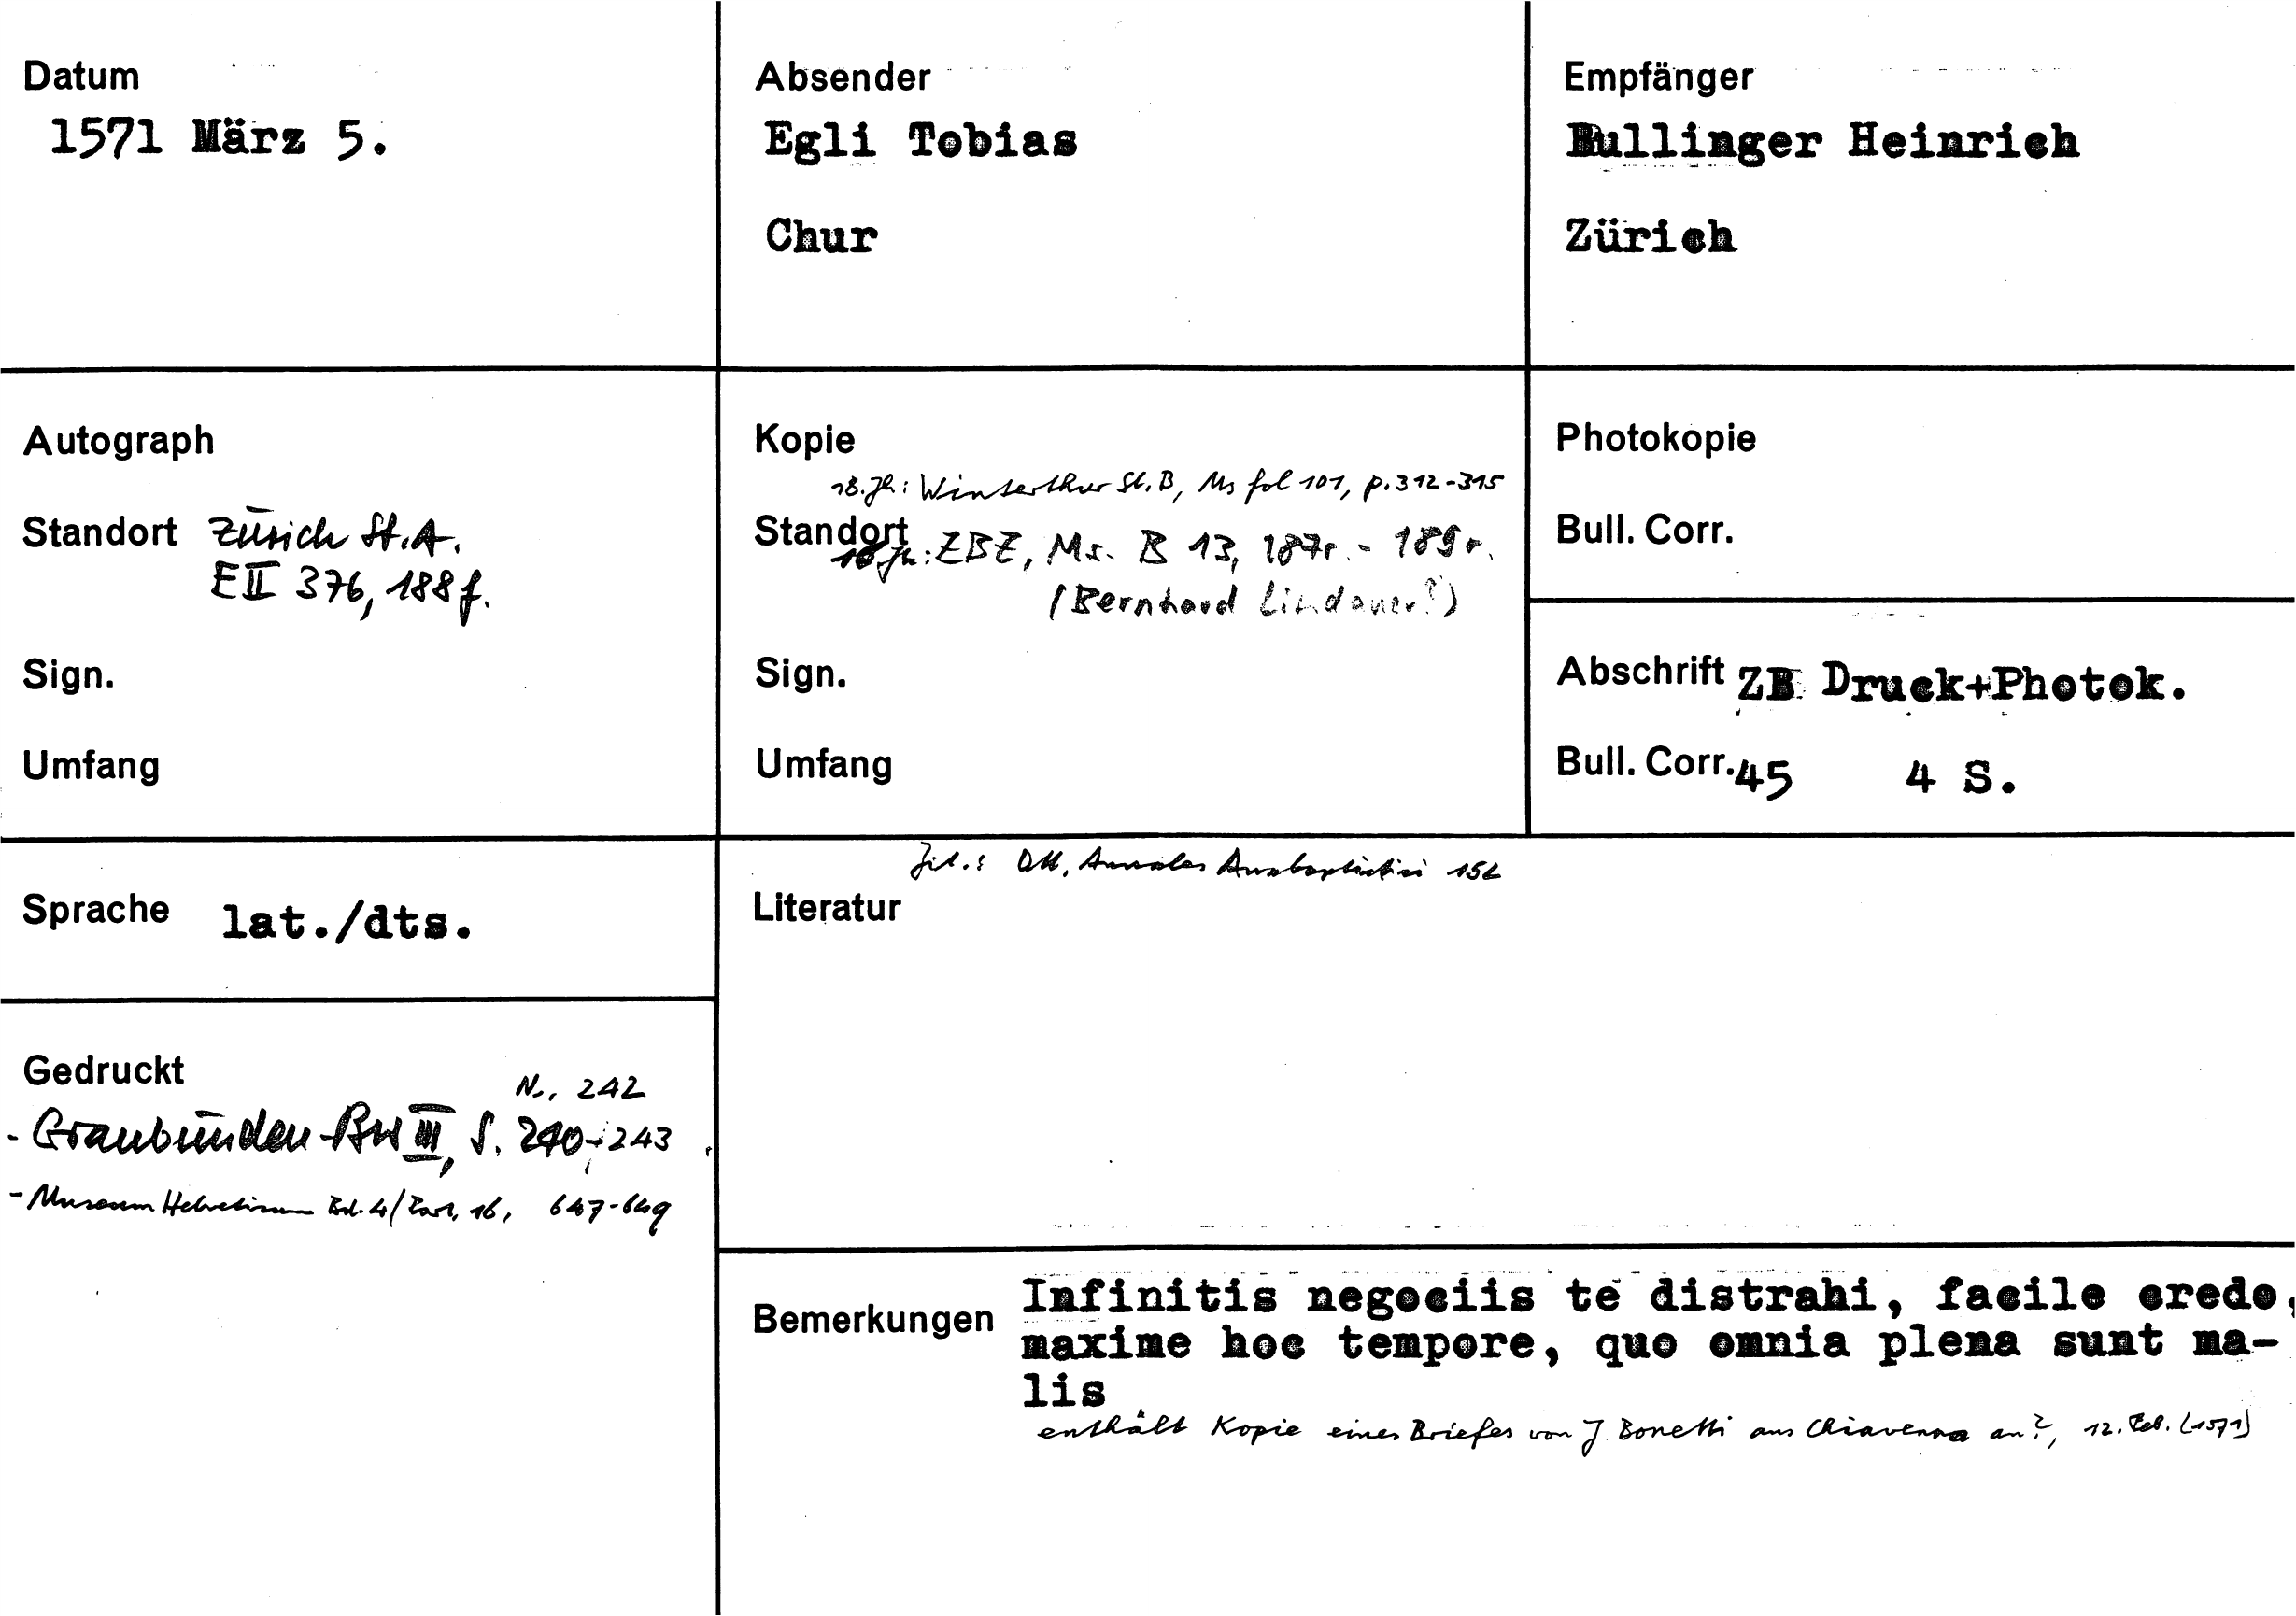 Datum
1571 März 5.
Absender
Egli Tobias
Chur
Empfänger
Bullinger Heinrich
Zürich
Autograph
Standort Zürich St.A.
E II 376, 188 f.
Sign.
Umfang
Kopie
18. Jh: Winterthur St.B, Ms fol 101, p. 312-315
Standort
18 Jh.: ZBZ, Ms. B 13, 187r. - 189r.
(Bernhard Lindauer?)
Sign.
Umfang
Photokopie
Bull. Corr.
Abschrift ZB Druck+Photok.
Bull. Corr. 45 4 S.
Sprache lat./dts.
Zit.: Ott, Annales Anabaptistici 152
Literatur
Gedruckt
Nr. 242
- Graubünden-BW III, S. 240-243
- Museum Helveticum Bd. 4/Part. 16, 647-649
Bemerkungen Infinitis negociis te distrahi, facile credo,
maxime hoc tempore, quo omnia plena sunt ma-
lis
enthält Kopie eines Briefes von J. Bonetti aus Chiavenna an?, 12. Feb. (1571)